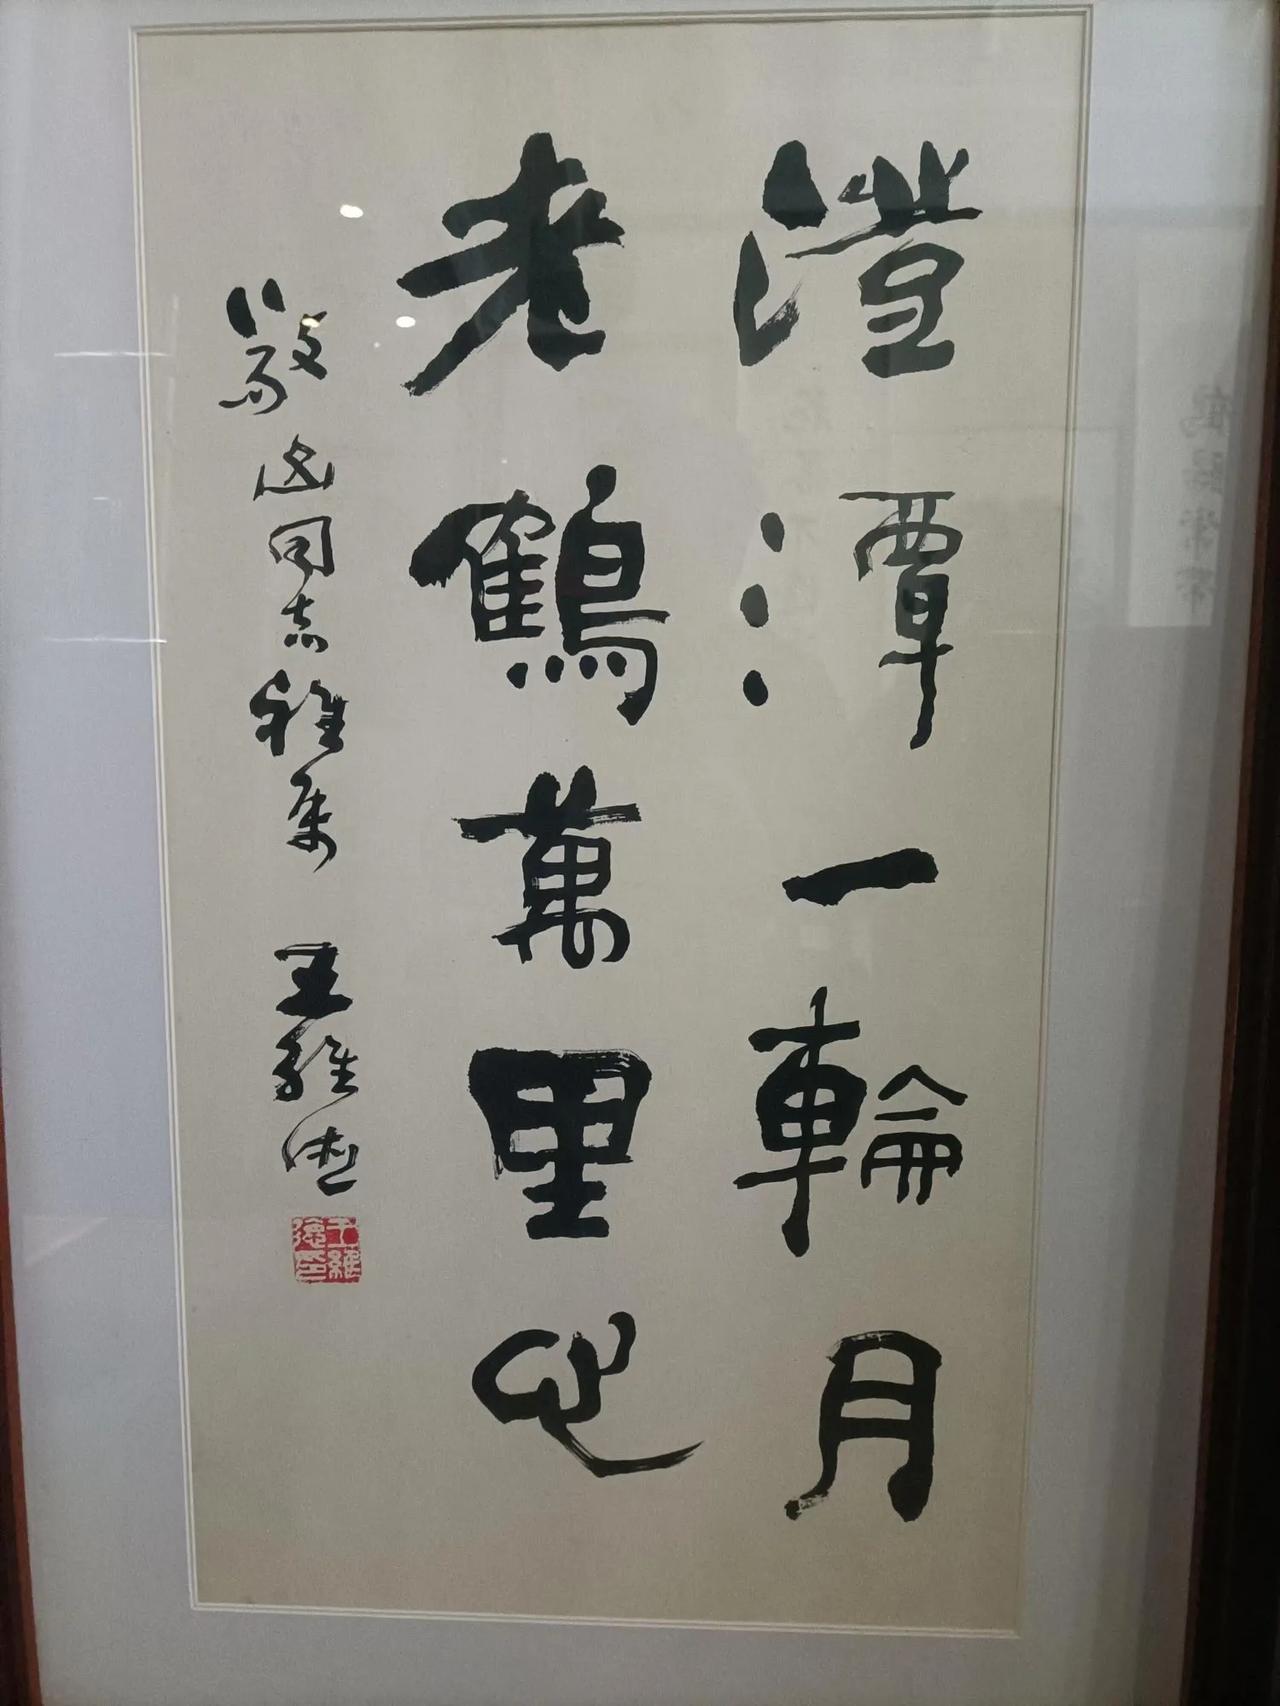 澄潭一輪月
老鶴萬里心
同志雅属 王維德
王維德印